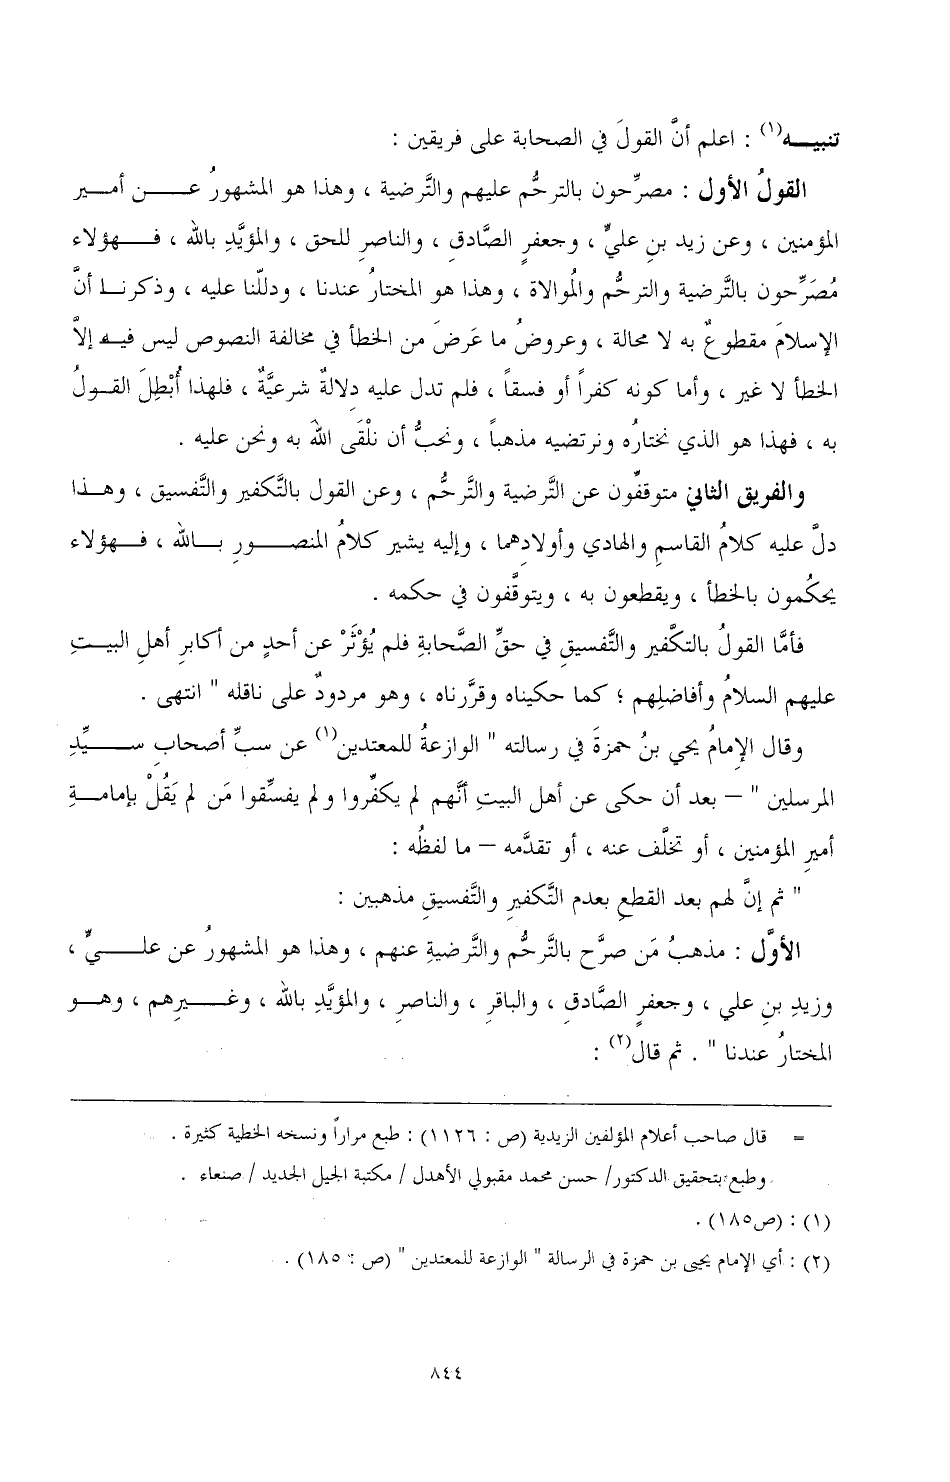 تنبيـــه(١) : اعلم أنَّ القولَ في الصحابة على فريقين :
القولُ الأول : مصرِّحون بالترحُّم عليهم والتَّرضية ، وهذا هو المشهورُ عـــن أمـير
المؤمنين ، وعن زيد بنِ عليٍّ ، وجعفرٍ الصَّادقِ ، والناصرِ للحق ، والمؤيَّدِ بالله ، فــهؤلاء
مُصَرِّحون بالتَّرضية والترحُّم والمُوالاة ، وهذا هو المختارُ عندنا ، ودللّنا عليه ، وذكرنـا أنَّ
الإسلامَ مقطوعٌ به لا محالة ، وعروضُ ما عَرضَ من الخطأ في مخالفة النصوص ليس فيـه إلاَّ
الخطأ لا غير ، وأما كونه كفراً أو فسقاً ، فلم تدل عليه دِلالةٌ شرعيَّةٌ ، فلهذا أُبْطِلَ القـولُ
به ، فهذا هو الذي نختارُه ونرتضيه مذهباً ، ونحبُّ أن نلْقَى اللهَ به ونحن عليه .
والفريق الثاني متوقفِّون عن التَّرضية والتَّرحُّم ، وعن القول بالتَّكفير والتَّفسيق ، وهـذا
دلَّ عليه كلامُ القاسمِ والهادي وأولادِهما ، وإليه يشير كلامُ المنصـــور بــالله ، فــهؤلاء
يحكُمون بالخطأ ، ويقطعون به ، ويتوقَّفون في حكمه .
فأمَّا القولُ بالتكَّفير والتَّفسيقِ في حقِّ الصَّحابةِ فلم يُؤْثَرْ عن أحدٍ من أكابرِ أهلِ البيـتِ
عليهم السلامُ وأفاضلِهم ؛ كما حكيناه وقرَّرناه ، وهو مردودٌ على ناقله " انتهى .
وقال الإمامُ يحي بنُ حمزةَ في رسالته " الوازعةُ للمعتدين(١) عن سبِّ أصحابِ ســـيِّدِ
المرسلين " – بعد أن حكى عن أهل البيتِ أنَّهم لم يكفِّروا ولم يفسِّقوا مَن لم يَقُلْ بإمامـــةِ
أميرِ المؤمنين ، أو تخلَّف عنه ، أو تقدَّمه – ما لفظُه :
" ثم إنَّ لهم بعد القطعِ بعدم التَّكفيرِ والتَّفسيقِ مذهبين :
الأوَّل : مذهبُ مَن صرَّح بالتَّرحُّم والتَّرضيةِ عنهم ، وهذا هو المشهورُ عن علـــيٍّ ،
وزيدِ بنِ علي ، وجعفرٍ الصَّادقِ ، والباقرِ ، والناصرِ ، والمؤيَّدِ بالله ، وغـــيرِهم ، وهــو
المختارُ عندنا " . ثم قال(٢) :
= قال صاحب أعلام المؤلفين الزيدية (ص : ١١٢٦) : طبع مراراً ونسخه الخطية كثيرة .
وطبع بتحقيق الدكتور/ حسن محمد مقبولي الأهدل / مكتبة الجيل الجديد / صنعاء .
(١) : (ص١٨٥) .
(٢) : أي الإمام يحيى بن حمزة في الرسالة " الوازعة للمعتدين " (ص : ١٨٥) .
٨٤٤